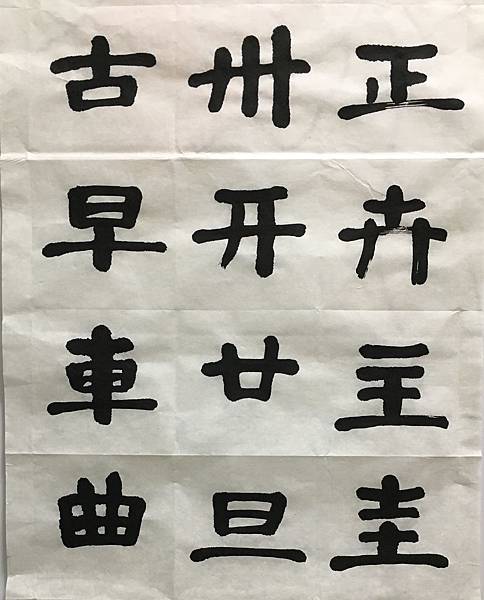 正卉主圭
卅开廿旦
古早車曲